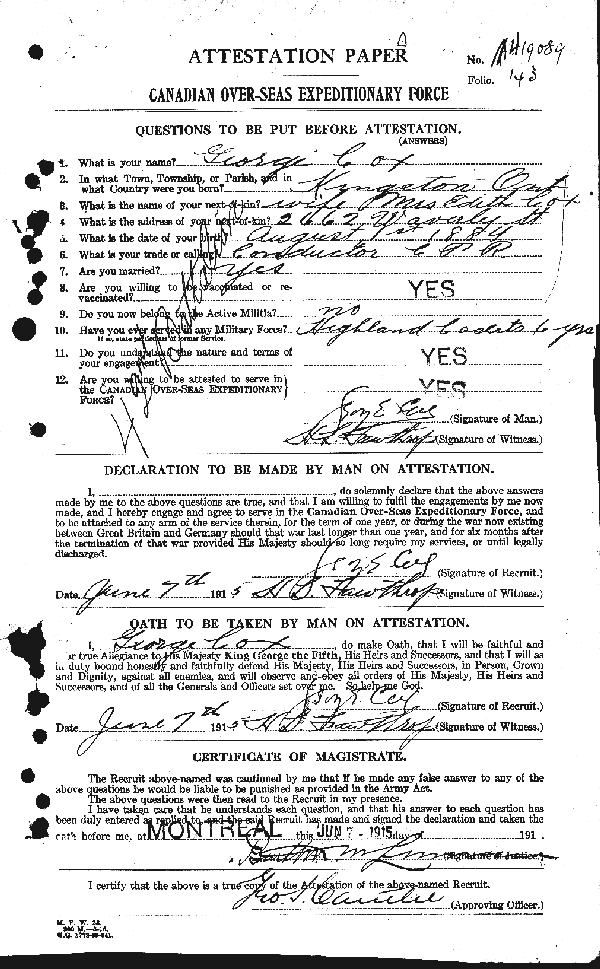 ATTESTATION PAPER
No. A419089
Folio. 143
CANADIAN OVER-SEAS EXPEDITIONARY FORCE
QUESTIONS TO BE PUT BEFORE ATTESTATION.
(ANSWERS)
1. What is your name? George Cox
2. In what Town, Township, or Parish, and in
what Country were you born? Kyngston Ont
3. What is the name of your next-of-kin? wife Mrs Edith Cox
4. What is the address of your next-of-kin? 2662 Waverly St
5. What is the date of your birth? August 1st 1884
6. What is your trade or calling? Conductor C P R
7. Are you married? Yes
8. Are you willing to be vaccinated or re-
vaccinated? YES
9. Do you now belong to the Active Militia? no
10. Have you ever served in any Military Force? Highland Cadets yes
If so, state particulars of former Service.
11. Do you understand the nature and terms of
your engagement? YES
12. Are you willing to be attested to serve in
the CANADIAN OVER-SEAS EXPEDITIONARY
FORCE? YES
(Signature of Man.)
H S Fawthrop (Signature of Witness.)
DECLARATION TO BE MADE BY MAN ON ATTESTATION.
I, , do solemnly declare that the above answers
made by me to the above questions are true, and that I am willing to fulfil the engagements by me now
made, and I hereby engage and agree to serve in the Canadian Over-Seas Expeditionary Force, and
to be attached to any arm of the service therein, for the term of one year, or during the war now existing
between Great Britain and Germany should that war last longer than one year, and for six months after
the termination of that war provided His Majesty should so long require my services, or until legally
discharged.
(Signature of Recruit.)
Date June 7th 1915 H S Fawthrop (Signature of Witness.)
OATH TO BE TAKEN BY MAN ON ATTESTATION.
I, George Cox , do make Oath, that I will be faithful and
bear true Allegiance to His Majesty King George the Fifth, His Heirs and Successors, and that I will as
in duty bound honestly and faithfully defend His Majesty, His Heirs and Successors, in Person, Crown
and Dignity, against all enemies, and will observe and obey all orders of His Majesty, His Heirs and
Successors, and of all the Generals and Officers set over me. So help me God.
(Signature of Recruit.)
Date June 7th 1915 H S Fawthrop (Signature of Witness.)
CERTIFICATE OF MAGISTRATE.
The Recruit above-named was cautioned by me that if he made any false answer to any of the
above questions he would be liable to be punished as provided in the Army Act.
The above questions were then read to the Recruit in my presence.
I have taken care that he understands each question, and that his answer to each question has
been duly entered as replied to, and the said Recruit has made and signed the declaration and taken the
oath before me, at MONTREAL this JUN 7 - 1915 day of 191 .
(Signature of Justice.)
I certify that the above is a true copy of the Attestation of the above-named Recruit.
(Approving Officer.)
M. F. W. 23.